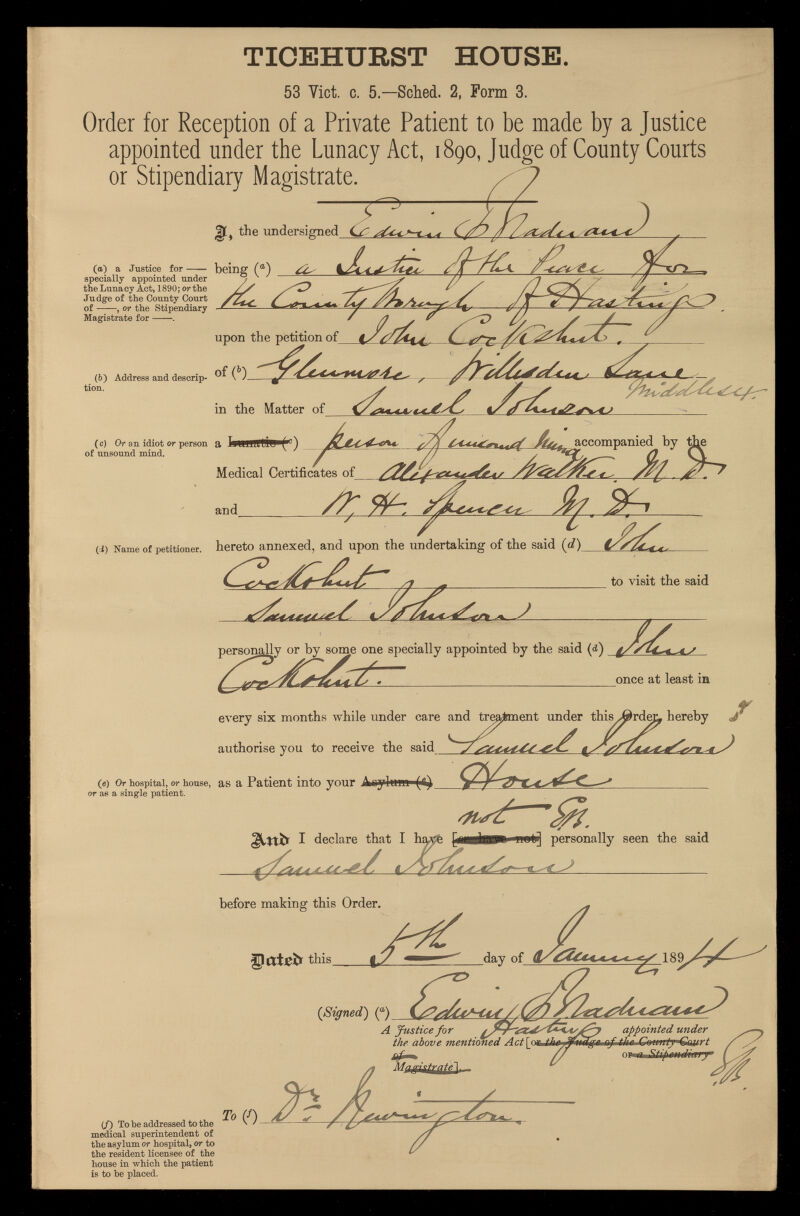 TICEHURST HOUSE.
53 Vict. c. 5.—Sched. 2, Form 3.
Order for Reception of a Private Patient to be made by a Justice
appointed under the Lunacy Act, 1890, Judge of County Courts
or Stipendiary Magistrate.
I, the undersigned Edwin
(a) a Justice for ——
specially appointed under
the Lunacy Act, 1890; or the
Judge of the County Court
of ——, or the Stipendiary
Magistrate for ——.
being (a) a Justice of the Peace for
the County Borough of Hastings
upon the petition of John Cockshut.
(b) Address and descrip-
tion.
of (b) Glenmore, Willesden Lane
Middlesex.
in the Matter of Samuel Johnson
(c) Or an idiot or person
of unsound mind.
a Lunatic (c) person of unsound mind accompanied by the
Medical Certificates of Alexander Walker M.D.
and W. H. Spencer M.D.
(d) Name of petitioner.
hereto annexed, and upon the undertaking of the said (d) John
Cockshut to visit the said
Samuel Johnson
personally or by some one specially appointed by the said (d) John
Cockshut. once at least in
every six months while under care and treatment under this Order, hereby
authorise you to receive the said Samuel Johnson
(e) Or hospital, or house,
or as a single patient.
as a Patient into your Asylum (e) House
not EB.
And I declare that I have [or have not] personally seen the said
Samuel Johnson
before making this Order.
Dated this 5th day of January 1894
(Signed) (a) Edwin
A Justice for Hastings appointed under
the above mentioned Act [or the Judge of the County Court
of or a Stipendiary
Magistrate].
EB.
To (f) Dr. Newington.
(f) To be addressed to the
medical superintendent of
the asylum or hospital, or to
the resident licensee of the
house in which the patient
is to be placed.